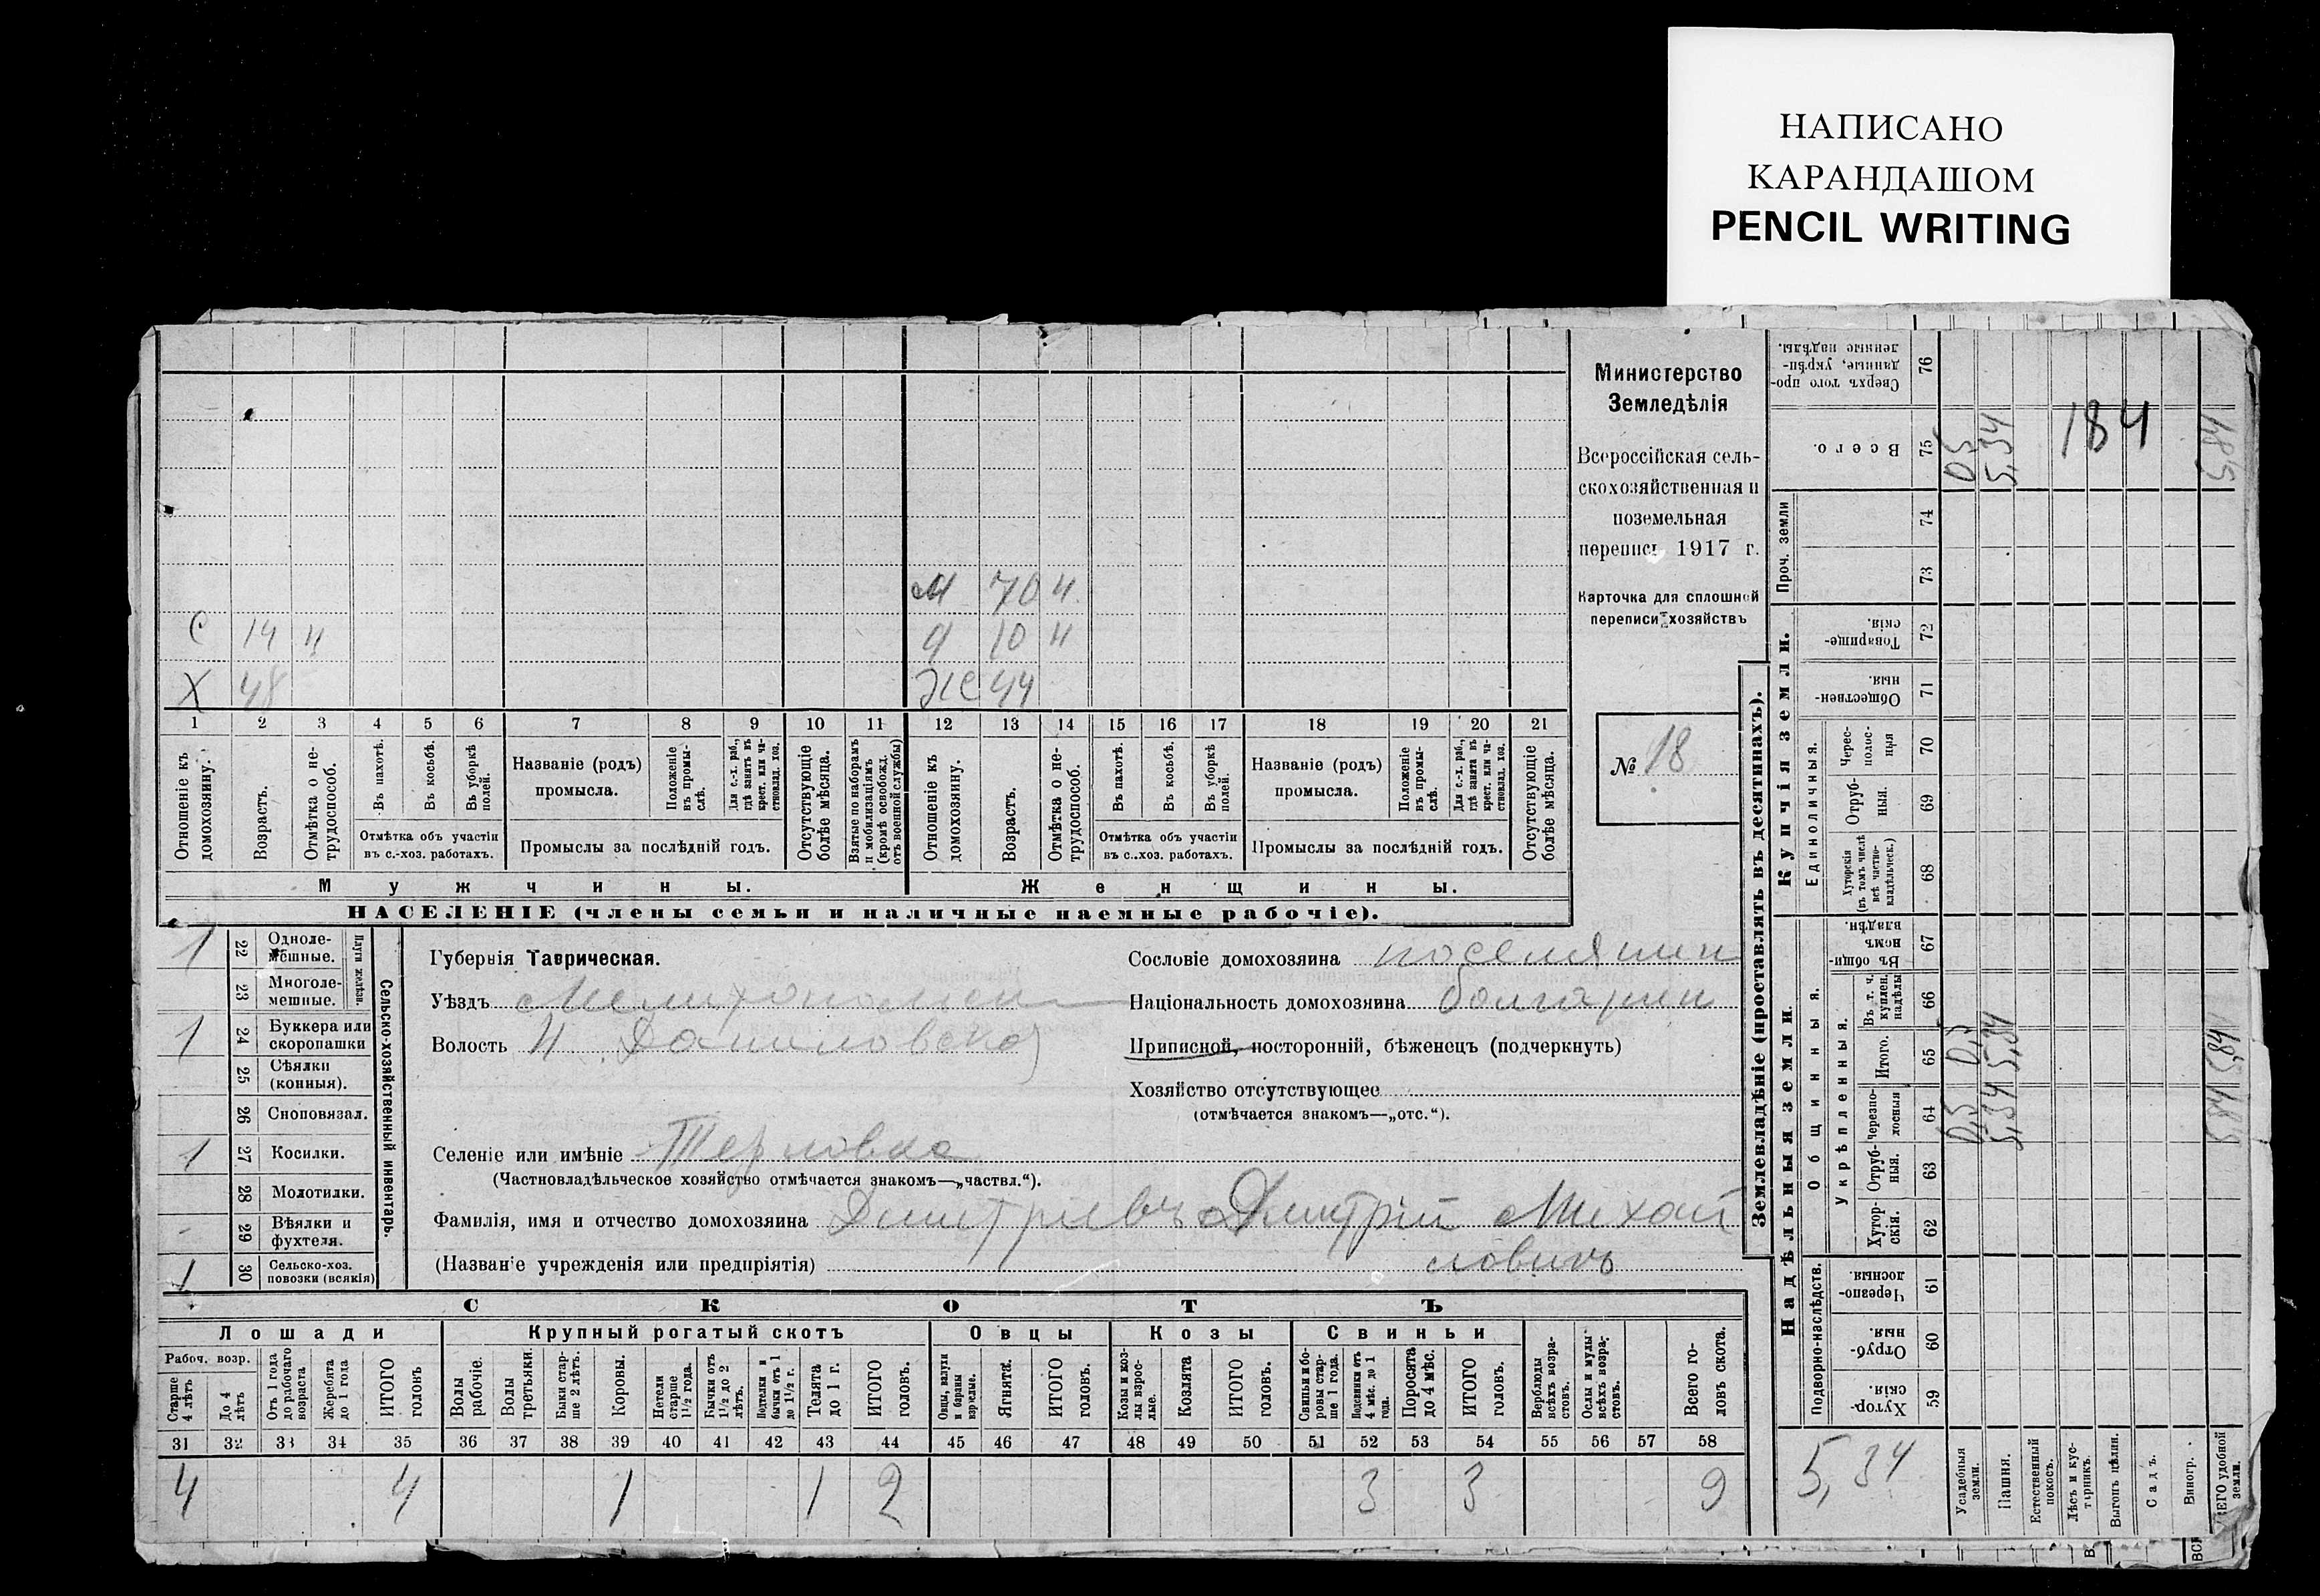 НАПИСАНО
КАРАНДАШОМ
PENCIL WRITING
Министерство
Земледѣлія
Всероссійская сель-
скохозяйственная и
поземельная
перепись 1917 г.
Карточка для сплошной
переписи хозяйствъ
№ 18
М 70 Н
С 14 Н
Д 10 Н
Х 48
Ж 44
1 2 3 4 5 6 7 8 9 10 11 12 13 14 15 16 17 18 19 20 21
Отношеніе къ домохозяину.
Возрастъ.
Отмѣтка о не-трудоспособ.
Въ пахотѣ.
Въ косьбѣ.
Въ уборкѣ полей.
Отмѣтка объ участіи
въ с.-хоз. работахъ.
Названіе (родъ)
промысла.
Положеніе въ промы-слѣ.
Для с.-х. раб., гдѣ занятъ въ крест. или ча-стновлад. хоз.
Промыслы за послѣдній годъ.
Отсутствующіе болѣе мѣсяца.
Взятые по наборамъ и мобилизаціямъ (кромѣ освобожд. отъ военной службы)
Отношеніе къ домохозяину.
Возрастъ.
Отмѣтка о не-трудоспособ.
Въ пахотѣ.
Въ косьбѣ.
Въ уборкѣ полей.
Отмѣтка объ участіи
въ с.-хоз. работахъ.
Названіе (родъ)
промысла.
Положеніе въ промы-слѣ.
Для с.-х. раб., гдѣ занята въ крест. или ча-стновлад. хоз.
Промыслы за послѣдній годъ.
Отсутствующіе болѣе мѣсяца.
Мужчины.
Женщины.
НАСЕЛЕНІЕ (члены семьи и наличные наемные рабочіе).
Сельско-хозяйственный инвентарь.
Плуги желѣзн.
1 22 Одноле-мешные.
23 Многоле-мешные.
1 24 Буккера или скоропашки
25 Сѣялки (конныя).
26 Сноповязал.
1 27 Косилки.
28 Молотилки.
- 29 Вѣялки и фухтеля.
1 30 Сельско-хоз. повозки (всякія)
Губернія Таврическая.
Уѣздъ
Волость Н. Даниловской
Селеніе или имѣніе Терновка
(Частновладѣльческое хозяйство отмѣчается знакомъ—„частвл.“).
Фамилія, имя и отчество домохозяина Дмитріевъ Дмитрій Михай
ловичъ
(Названіе учрежденія или предпріятія)
Сословіе домохозяина поселянин
Національность домохозяина болгарин
Приписной, посторонній, бѣженецъ (подчеркнуть)
Хозяйство отсутствующее
(отмѣчается знакомъ—„отс.“).
СКОТЪ
Лошади
Крупный рогатый скотъ
Овцы
Козы
Свиньи
Рабоч. возр.
Старше 4 лѣтъ
До 4 лѣтъ
Отъ 1 года до рабочаго возраста
Жеребята до 1 года
ИТОГО головъ
Волы рабочіе.
Волы третьяки.
Быки стар-ше 2 лѣтъ.
Коровы.
Нетели старше 1½ года.
Бычки отъ 1½ до 2 лѣтъ.
Подтелки и бычки отъ 1 до 1½ г.
Телята до 1 г.
ИТОГО головъ.
Овцы, валухи и бараны взрослые.
Ягнята.
ИТОГО головъ.
Козы и коз-лы взрос-лые.
Козлята
ИТОГО головъ.
Свиньи и бо-ровы стар-ше 1 года.
Подсвинки отъ 4 мѣс. до 1 года.
Поросята до 4 мѣс.
ИТОГО головъ.
Верблюды всѣхъ возра-стовъ.
Ослы и мулы всѣхъ возра-стовъ.
Всего го-ловъ скота.
31 32 33 34 35 36 37 38 39 40 41 42 43 44 45 46 47 48 49 50 51 52 53 54 55 56 57 58
4 4 1 1 2 3 3 9
Землевладѣніе (проставлять въ десятинахъ).
Надѣльныя земли.
Купчія земли.
Проч. земли
Подворно-наслѣдств.
Общинныя.
Укрѣпленныя.
Единоличныя.
Сверхъ того про-данные, укрѣп-ленные надѣлы. 76
Всего. 75
74
73
Товарище-скія. 72
Обществен-ныя. 71
Черес-полос-ныя 70
Отруб-ныя. 69
Хуторскія (въ томъ числѣ всѣ частно-владѣльческ.) 68
Въ общин-номъ владѣн. 67
Въ т. ч. куплен. надѣлы 66
Итого. 65
Черезпо-лосныя 64
Отруб-ныя. 63
Хутор-скія. 62
Черезпо-лосныя. 61
Отруб-ныя. 60
Хутор-скія. 59
0,5 5,34 184 5,84
0,5 5,34 5,84
0,5 5,34 5,84
5,34
Усадебныя земли.
Пашня.
Естественный покосъ.
Лѣсъ и кус-тарникъ.
Выгонъ цѣлин.
Садъ.
Виногр.
ВСЕГО удобной земли.